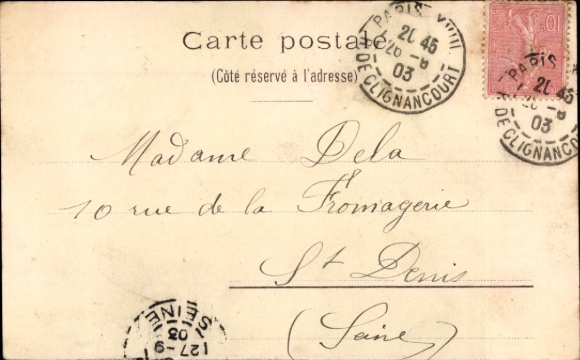 Carte postale
(Côté réservé à l'adresse)
PARIS XVIII
21 45
26 -8
03
R. DE CLIGNANCOURT
10
PARIS
21 45
26 -8
03
R. DE CLIGNANCOURT
Madame Dela
10 rue de la Fromagerie
St Denis
(Seine)
SEINE
27 -9
03